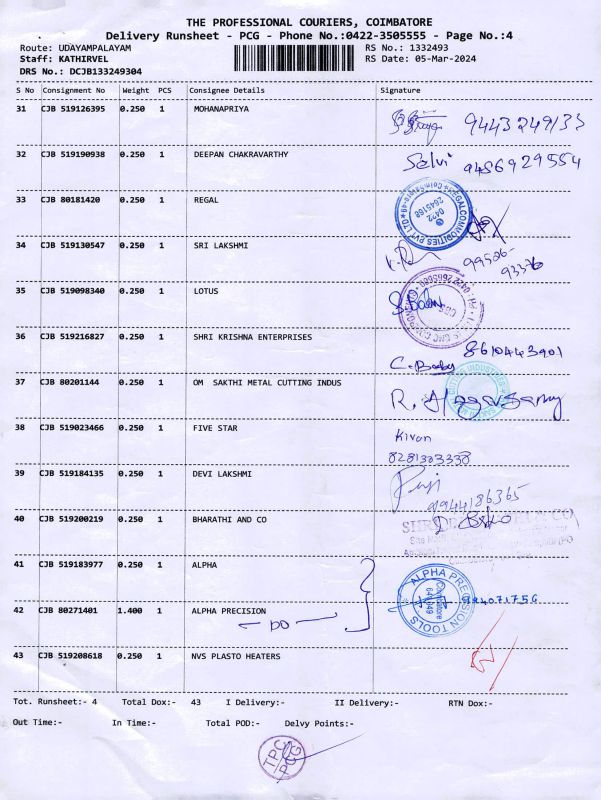 THE PROFESSIONAL COURIERS, COIMBATORE
Delivery Runsheet - PCG - Phone No.:0422-3505555 - Page No.:4
Route: UDAYAMPALAYAM RS No.: 1332493
Staff: KATHIRVEL RS Date: 05-Mar-2024
DRS No.: DCJB133249304
S No Consignment No Weight PCS Consignee Details Signature
31 CJB 519126395 0.250 1 MOHANAPRIYA
32 CJB 519190938 0.250 1 DEEPAN CHAKRAVARTHY Selvi 9486929554
33 CJB 80181420 0.250 1 REGAL
0422
2645168
34 CJB 519130547 0.250 1 SRI LAKSHMI 99506-
93376
35 CJB 519098340 0.250 1 LOTUS
36 CJB 519216827 0.250 1 SHRI KRISHNA ENTERPRISES 8610443901
37 CJB 80201144 0.250 1 OM SAKTHI METAL CUTTING INDUS R.
38 CJB 519023466 0.250 1 FIVE STAR Kivan
8281303338
39 CJB 519184135 0.250 1 DEVI LAKSHMI
9944186365
40 CJB 519200219 0.250 1 BHARATHI AND CO
41 CJB 519183977 0.250 1 ALPHA
ALPHA PRECISION TOOLS
Coimbatore
641 049
42 CJB 80271401 1.400 1 ALPHA PRECISION
DO
43 CJB 519208618 0.250 1 NVS PLASTO HEATERS
Tot. Runsheet:- 4 Total Dox:- 43 I Delivery:- II Delivery:- RTN Dox:-
Out Time:- In Time:- Total POD:- Delvy Points:-
TPC
PCG